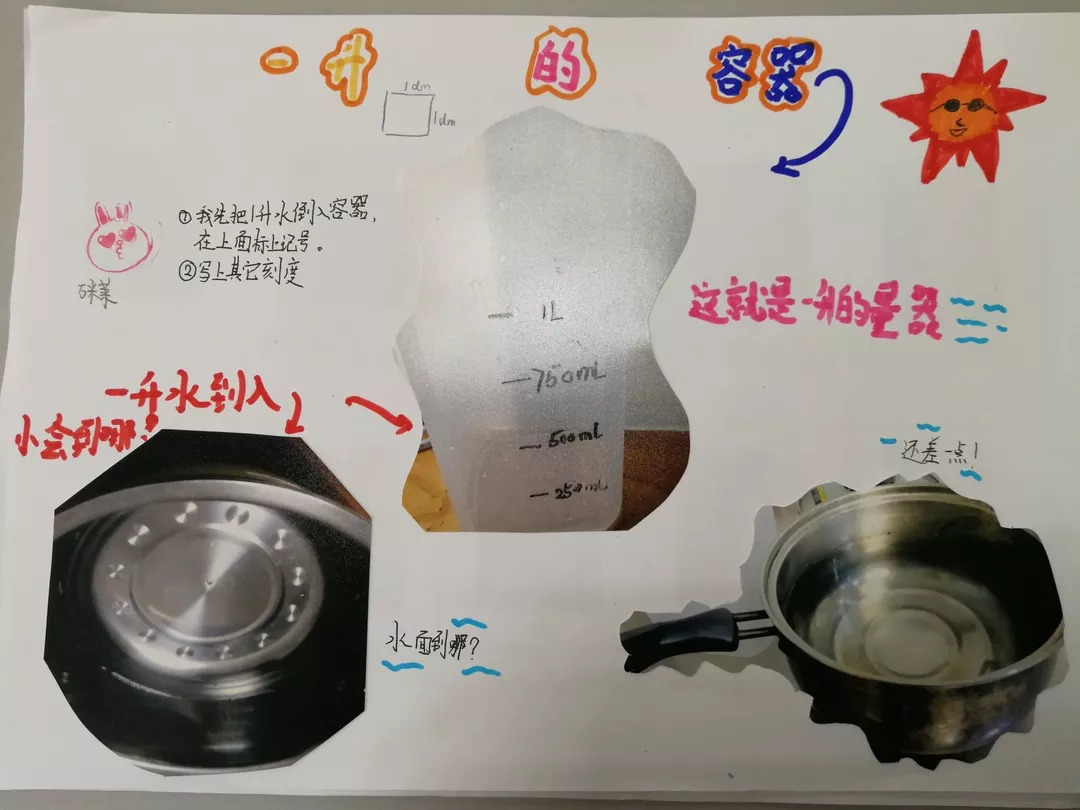 一升的容器
1dm
1dm
①我先把1升水倒入容器,
在上面标上记号。
②写上其它刻度
1L
750mL
500mL
250mL
这就是一升的量器
一升水到入
小会到哪?
还差一点!
水面到哪?